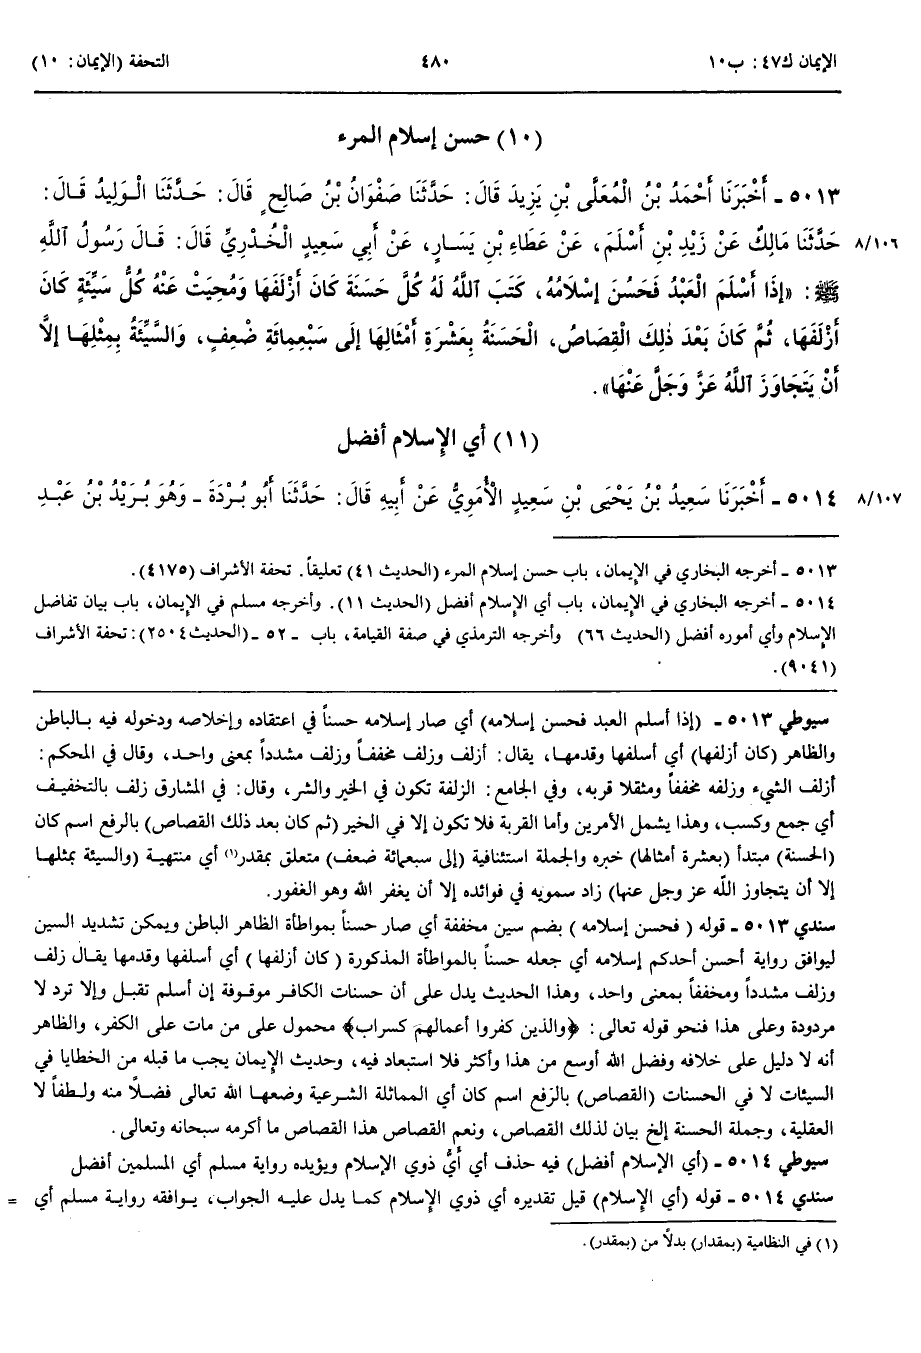 الإيمان ك٤٧: ب١٠ ٤٨٠ التحفة (الإيمان: ١٠)
(١٠) حسن إسلام المرء
٥٠١٣ ـ أَخْبَرَنَا أَحْمَدُ بْنُ الْمُعَلَّى بْنِ يَزِيدَ قَالَ: حَدَّثَنَا صَفْوَانُ بْنُ صَالِحٍ قَالَ: حَدَّثَنَا الْوَلِيدُ قَالَ:
٨/١٠٦ حَدَّثَنَا مَالِكٌ عَنْ زَيْدِ بْنِ أَسْلَمَ، عَنْ عَطَاءِ بْنِ يَسَارٍ، عَنْ أَبِي سَعِيدٍ الْخُدْرِيِّ قَالَ: قَالَ رَسُولُ اللَّهِ
ﷺ: «إِذَا أَسْلَمَ الْعَبْدُ فَحَسُنَ إِسْلَامُهُ، كَتَبَ اللَّهُ لَهُ كُلَّ حَسَنَةٍ كَانَ أَزْلَفَهَا وَمُحِيَتْ عَنْهُ كُلُّ سَيِّئَةٍ كَانَ
أَزْلَفَهَا، ثُمَّ كَانَ بَعْدَ ذٰلِكَ الْقِصَاصُ، الْحَسَنَةُ بِعَشْرَةِ أَمْثَالِهَا إِلَى سَبْعِمِائَةِ ضِعْفٍ، وَالسَّيِّئَةُ بِمِثْلِهَا إِلاَّ
أَنْ يَتَجَاوَزَ اللَّهُ عَزَّ وَجَلَّ عَنْهَا».
(١١) أي الإسلام أفضل
٨/١٠٧ ٥٠١٤ ـ أَخْبَرَنَا سَعِيدُ بْنُ يَحْيَى بْنِ سَعِيدٍ الْأُمَوِيُّ عَنْ أَبِيهِ قَالَ: حَدَّثَنَا أَبُو بُرْدَةَ ـ وَهُوَ بُرَيْدُ بْنُ عَبْدِ
٥٠١٣ ـ أخرجه البخاري في الإيمان، باب حسن إسلام المرء (الحديث ٤١) تعليقاً. تحفة الأشراف (٤١٧٥).
٥٠١٤ ـ أخرجه البخاري في الإيمان، باب أي الإسلام أفضل (الحديث ١١). وأخرجه مسلم في الإيمان، باب بيان تفاضل
الإسلام وأي أموره أفضل (الحديث ٦٦) وأخرجه الترمذي في صفة القيامة، باب ـ ٥٢ ـ (الحديث ٢٥٠٤): تحفة الأشراف
(٩٠٤١).
سيوطي ٥٠١٣ ـ (إذا أسلم العبد فحسن إسلامه) أي صار إسلامه حسناً في اعتقاده وإخلاصه ودخوله فيه بالباطن
والظاهر (كان أزلفها) أي أسلفها وقدمها، يقال: أزلف وزلف مخففاً وزلف مشدداً بمعنى واحد، وقال في المحكم:
أزلف الشيء وزلفه مخففاً ومثقلا قربه، وفي الجامع: الزلفة تكون في الخير والشر، وقال: في المشارق زلف بالتخفيف
أي جمع وكسب، وهذا يشمل الأمرين وأما القربة فلا تكون إلا في الخير (ثم كان بعد ذلك القصاص) بالرفع اسم كان
(الحسنة) مبتدأ (بعشرة أمثالها) خبره والجملة استئنافية (إلى سبعمائة ضعف) متعلق بمقدر(١) أي منتهية (والسيئة بمثلها
إلا أن يتجاوز اللّه عز وجل عنها) زاد سمويه في فوائده إلا أن يغفر الله وهو الغفور.
سندي ٥٠١٣ ـ قوله ( فحسن إسلامه ) بضم سين مخففة أي صار حسناً بمواطأة الظاهر الباطن ويمكن تشديد السين
ليوافق رواية أحسن أحدكم إسلامه أي جعله حسناً بالمواطأة المذكورة ( كان أزلفها ) أي أسلفها وقدمها يقال زلف
وزلف مشدداً ومخففاً بمعنى واحد، وهذا الحديث يدل على أن حسنات الكافر موقوفة إن أسلم تقبل وإلا ترد لا
مردودة وعلى هذا فنحو قوله تعالى: ﴿والذين كفروا أعمالهم كسراب﴾ محمول على من مات على الكفر، والظاهر
أنه لا دليل على خلافه وفضل الله أوسع من هذا وأكثر فلا استبعاد فيه، وحديث الإيمان يجب ما قبله من الخطايا في
السيئات لا في الحسنات (القصاص) بالرفع اسم كان أي المماثلة الشرعية وضعها الله تعالى فضلاً منه ولطفاً لا
العقلية، وجملة الحسنة إلخ بيان لذلك القصاص، ونعم القصاص هذا القصاص ما أكرمه سبحانه وتعالى.
سيوطي ٥٠١٤ ـ (أي الإسلام أفضل) فيه حذف أي أَيُّ ذوي الإسلام ويؤيده رواية مسلم أي المسلمين أفضل
سندي ٥٠١٤ ـ قوله (أي الإسلام) قيل تقديره أي ذوي الإسلام كما يدل عليه الجواب، يوافقه رواية مسلم أي =
(١) في النظامية (بمقدار) بدلاً من (بمقدر).